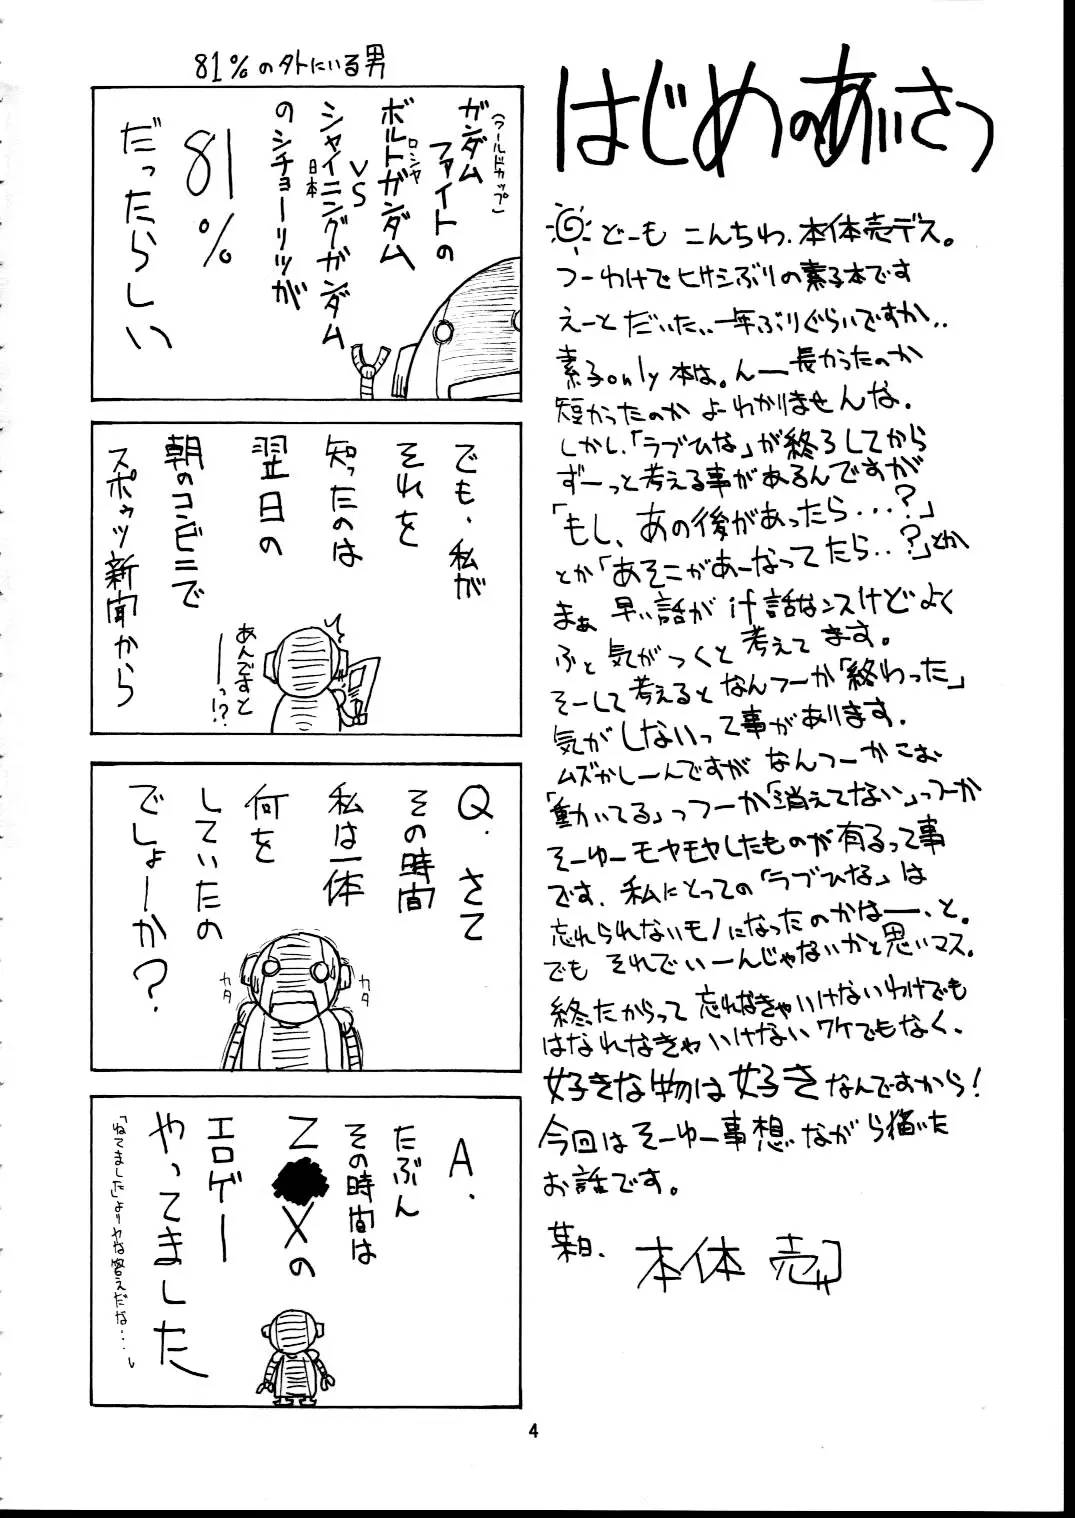 はじめのあいさつ
どーも こんちわ、本体売デス。
つーわけでヒサシぶりの素子本です
えーと だいたい、一年ぶりぐらいですか、、
素子only本は。んー長かったのか
短かったのか よーわかりませんな。
しかし、「ラブひな」が終ろしてから
ずーっと考える事があるんですが
「もし、あの後があったら・・・?」
とか「あそこがあーなってたら・・?」とか
まぁ 早い話が if話なンスけどよく
ふと 気がつくと 考えてます。
そーして考えるとなんつーか「終わった」
気がしないって事があります。
ムズかしーんですが なんつーかこお
「動いてる」っつーか「消えてない」っつーか
そーゆーモヤモヤしたものが有るって事
です。私にとっての「ラブひな」は
忘れられないモノになったのかはー、と。
でも それでいーんじゃないかと思いマス。
終たからって 忘れなきゃいけないわけでも
はなれなきゃいけないワケでもなく、
好きな物は好きなんですから!
今回は そーゆー事想いながら描いた
お話です。
某日、 本体 売
81%の外にいる男
(ワールドカップ)
ガンダム
ファイトの
ロシヤ
ボルトガンダム
VS
日本
シャイニングガンダム
のシチョーリツが
81%
だったらしい
でも、私が
それを
知ったのは
翌日の
朝のコンビニで
スポゥツ新聞から
あんですと
ーっ!?
Q.さて
その時間
私は一体
何を
していたの
でしょーか?
カタ
カタ
A.
たぶん
その時間は
Z Xの
エロゲー
やってました
「ねてました」よりヤな答えだな・・・。
4